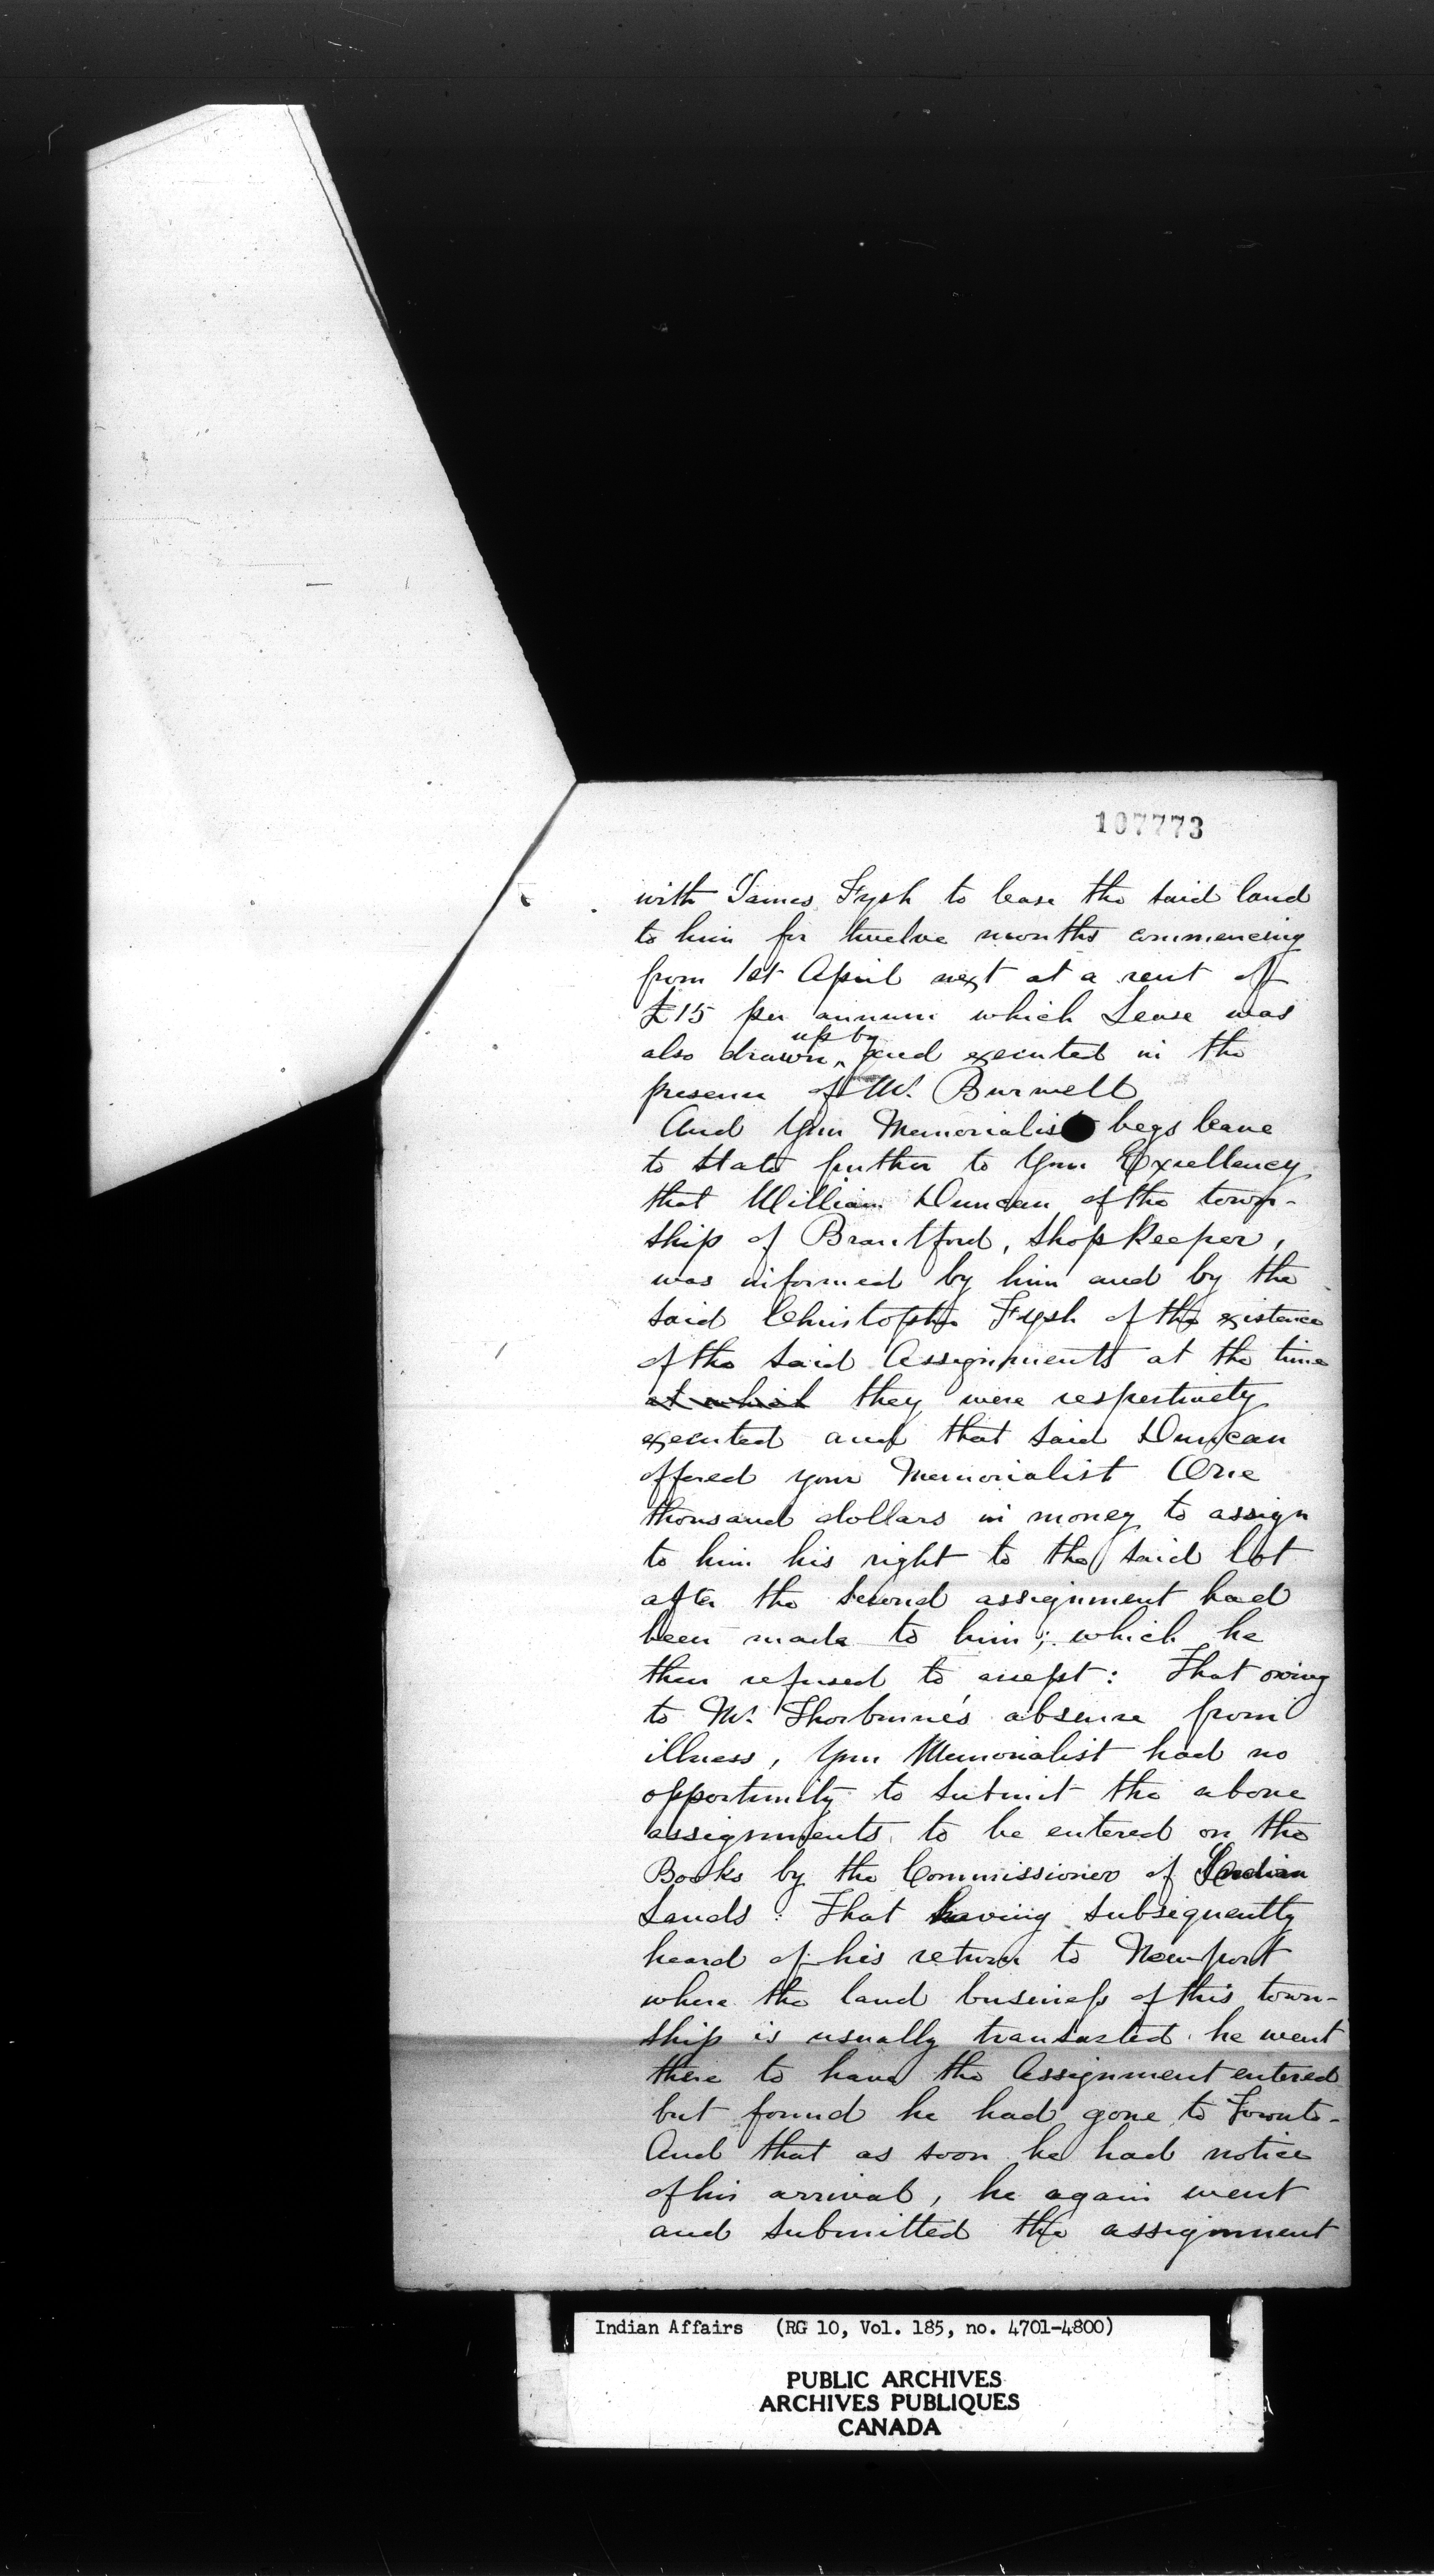 107773
with James Fysh to lease the said land
to him for twelve months commencing
from 1st April next at a rent of
£15 per annum which Lease was
up by
also drawn ‸ and executed in the
presence of Mr. Burwell
And Your Memorialist begs leave
to state further to Your Excellency
that William Duncan of the town-
ship of Brantford, shopkeeper,
was informed by him and by the
said Christopher Fysh of the existence
of the said Assignments at the time
at which they were respectively
executed and that said Duncan
offered your Memorialist One
thousand dollars in money to assign
to him his right to the said lot
after the second assignment had
been made to him; which he
then refused to accept: That owing
to Mr. Thorburne's absence from
illness, Your Memorialist had no
opportunity to submit the above
assignments to be entered on the
Books by the Commissioner of Indian
Lands: That having subsequently
heard of his return to Newport
where the land business of this town-
ship is usually transacted he went
there to have the Assignment entered
but found he had gone to Toronto-
And that as soon he had notice
of his arrival, he again went
and submitted the assignment
Indian Affairs (RG 10, Vol. 185, no. 4701-4800)
PUBLIC ARCHIVES
ARCHIVES PUBLIQUES
CANADA